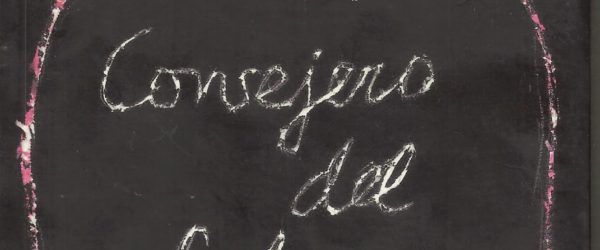 Consejero
del